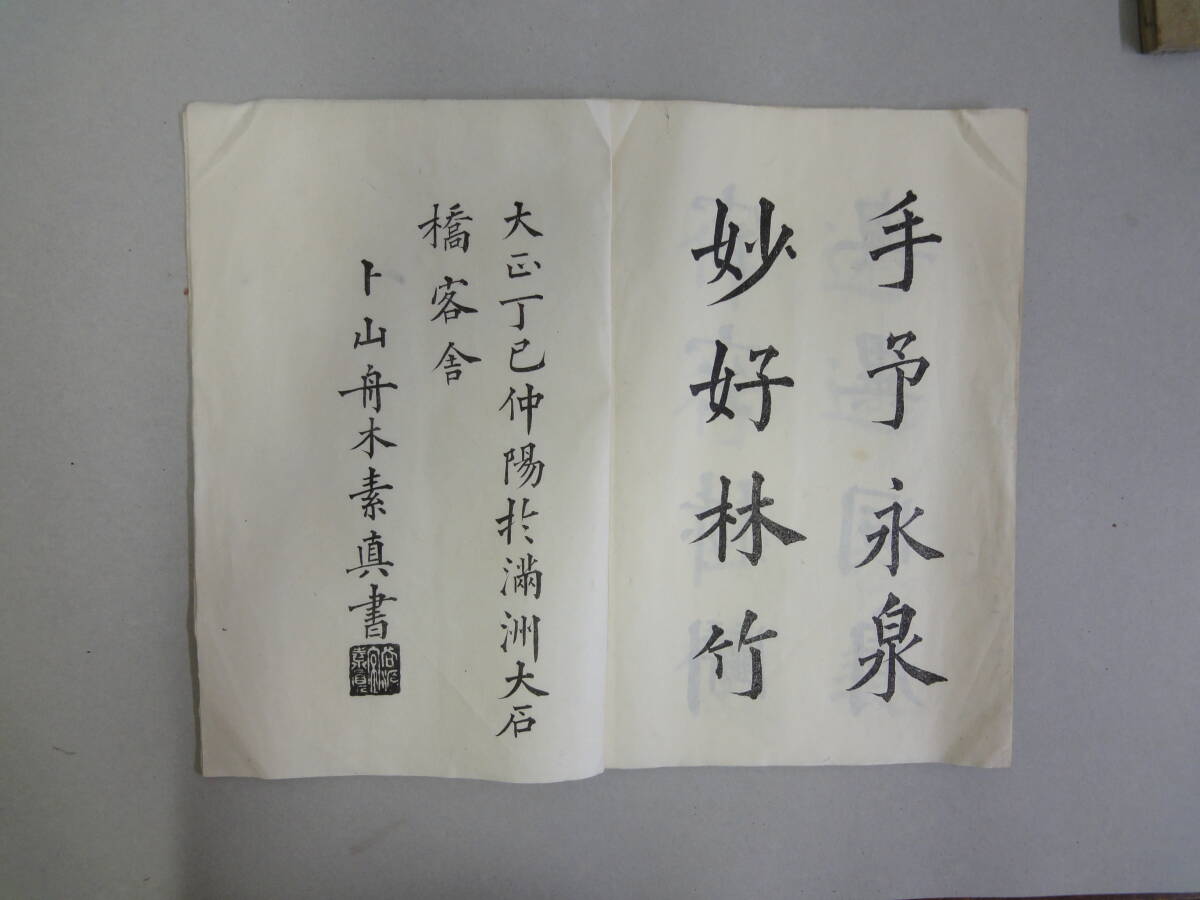 手予永泉
妙好林竹
大正丁巳仲陽於滿洲大石
橋客舍
卜山舟木素真書